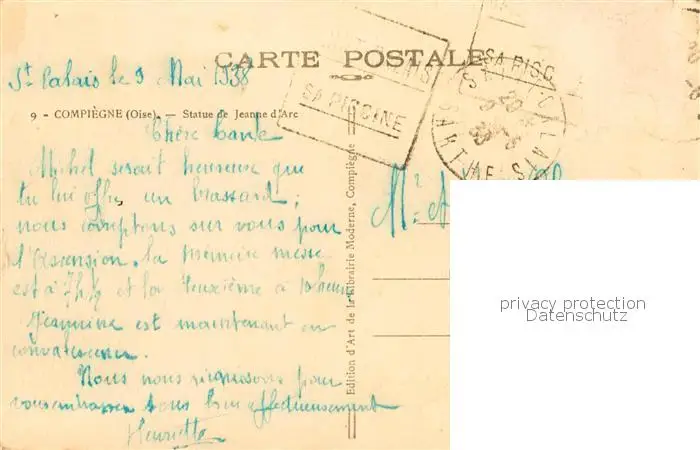 CARTE POSTALE
SA PISCINE
SA PISC
St Palais le 9 Mai 1938
9 - COMPIÈGNE (Oise). — Statue de Jeanne d'Arc
Chère Tante
Michel serait heureuse que
tu lui offre un brassard ;
nous comptons sur vous pour
l'Ascension. la première messe
est à 7h½ et la deuxième à 10 heures
est maintenant en
convalescence.
Nous nous pour
vous embrasser tous bien affectueusement
Henriette
Edition d'Art de la Librairie Moderne, Compiègne
privacy protection
Datenschutz